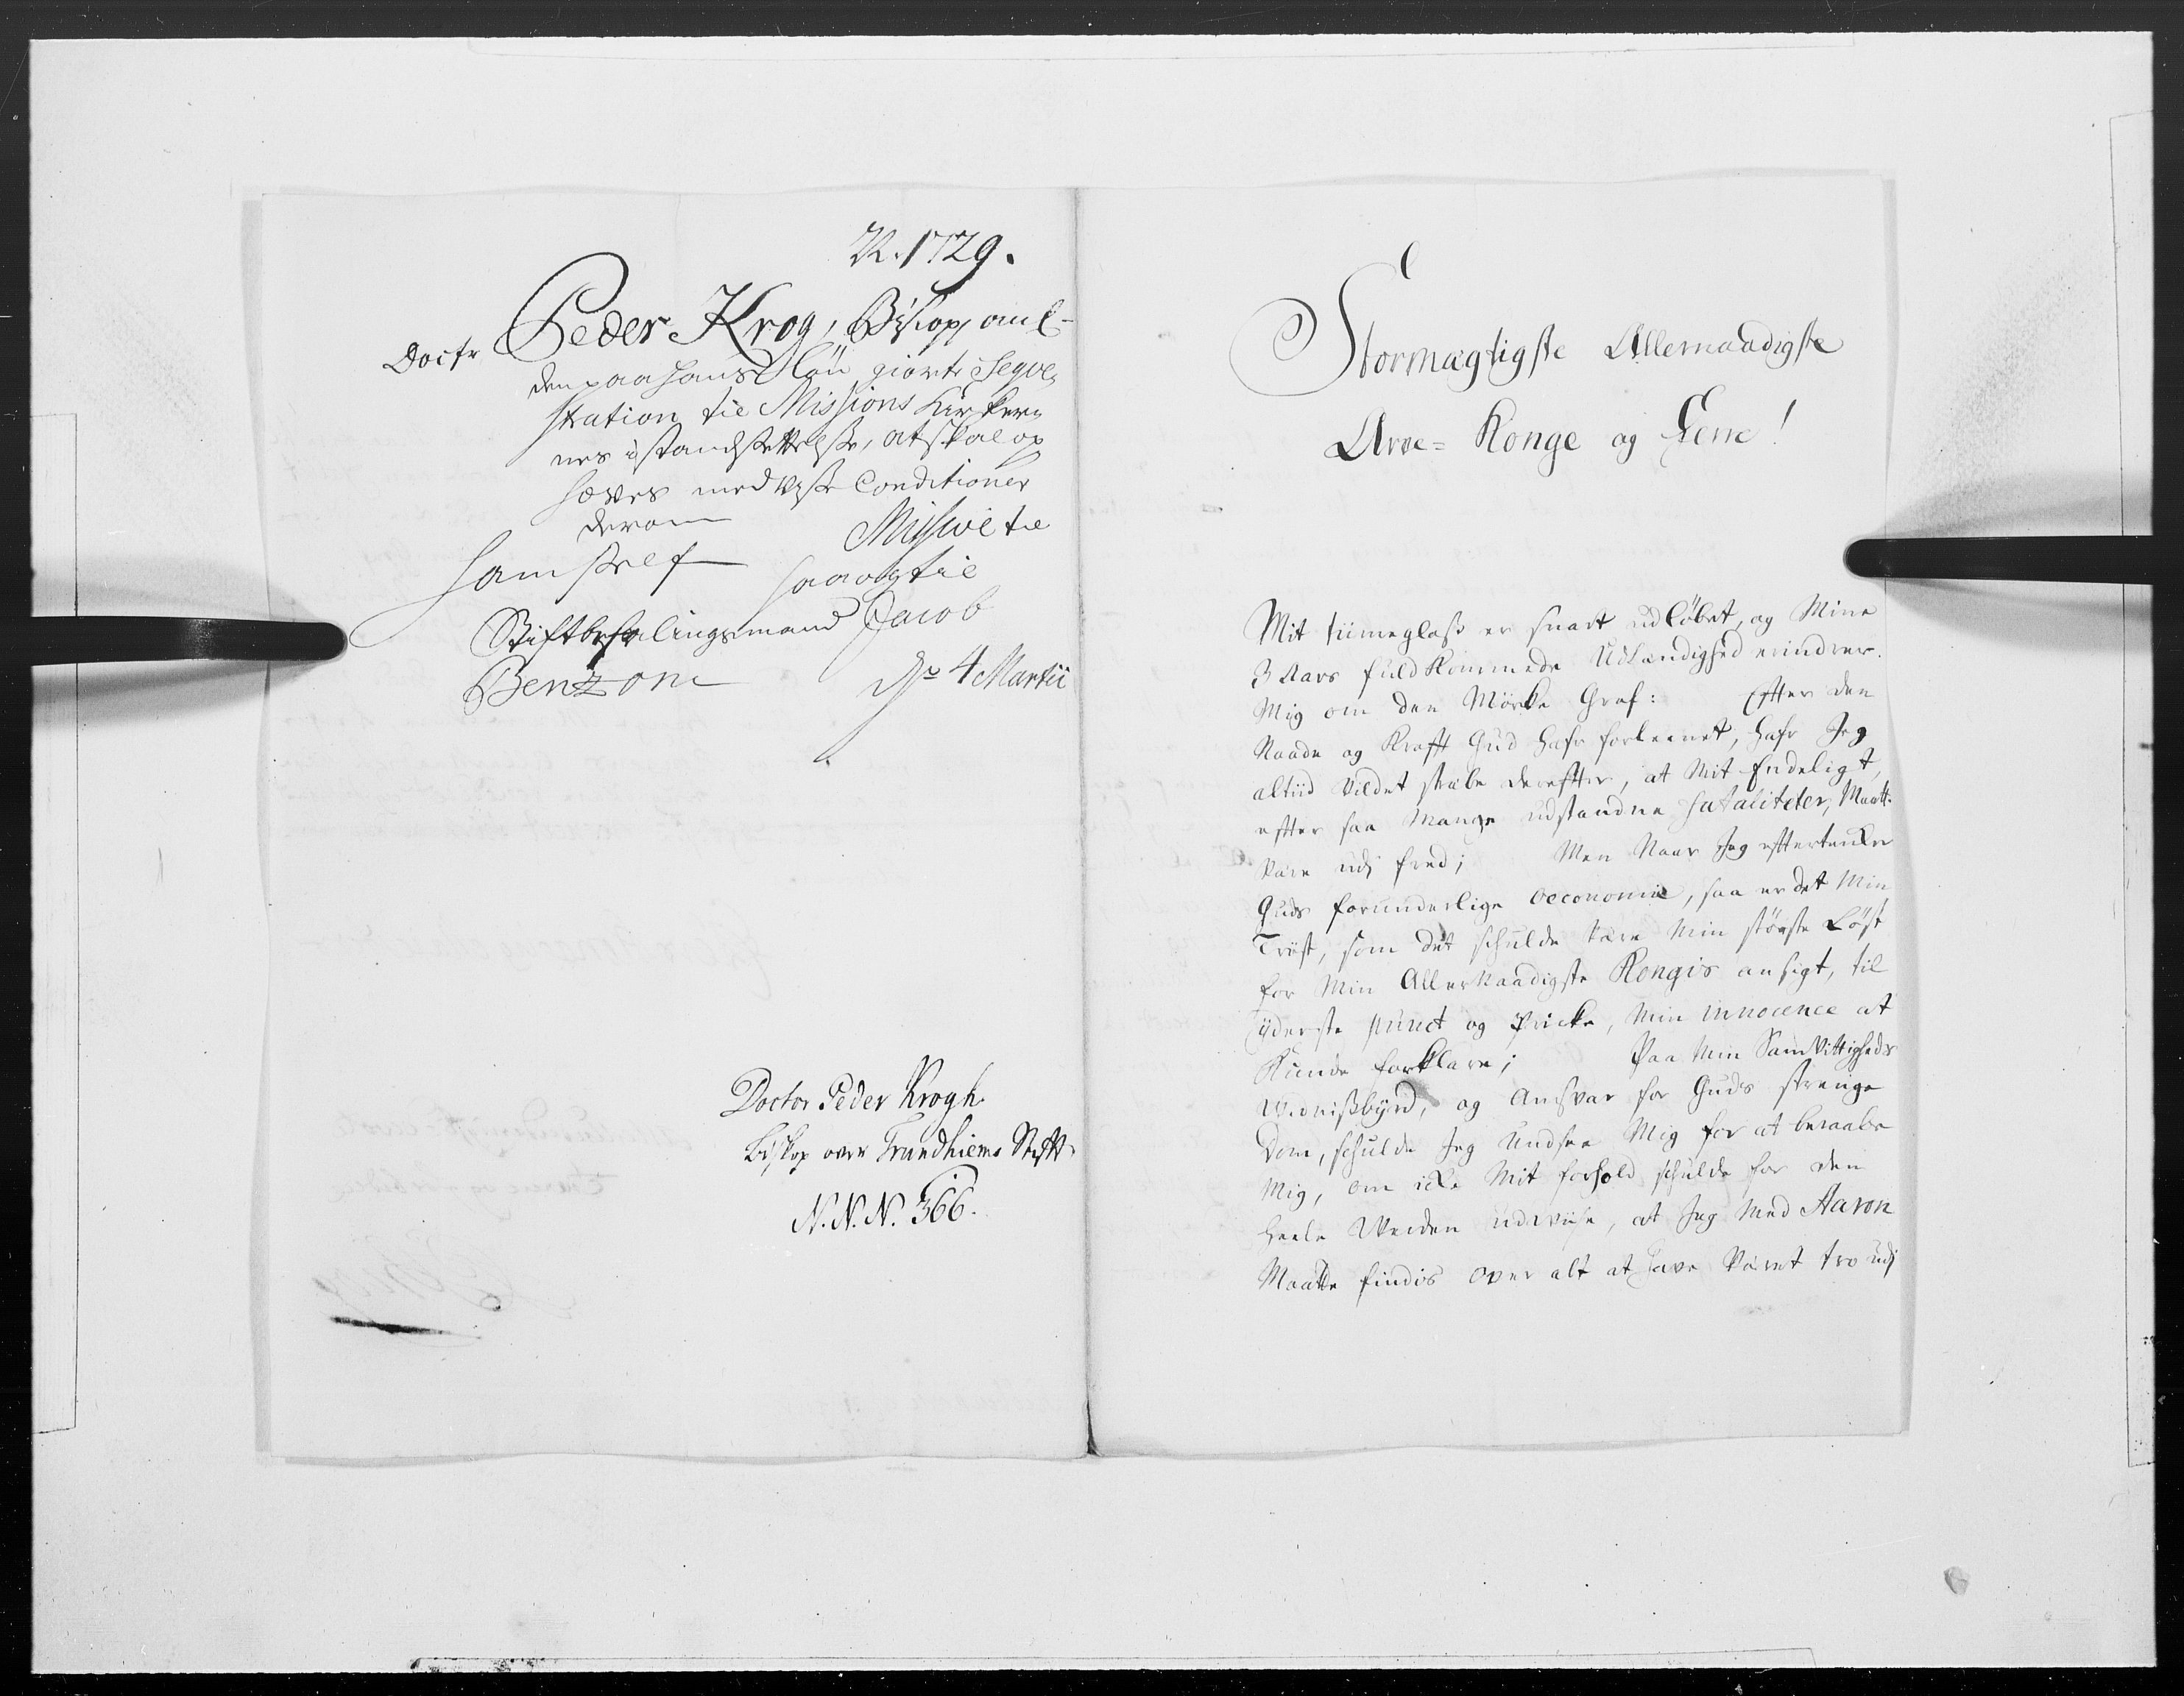 N. 1729.
Doctr Peder Krog, Biskop, anl-
den paa hans Løn giorte Seqve-
stration til Missions Kirker-
nes istandsettelse, at skal op
hæves med visse Conditioner
derom Missive til
ham self saa og til
Stiftbefalingsmand Jacob
Benzon 4 Martii
Doctor Peder Krogh.
Biskop over Trundhiems Stift.
N. N. N. 366.
Stormægtigste Allernaadigste
Arve= Konge og Herre!
Mit tiimeglass er snart udløbet, og Mine
3 Aars fuldkommede Udlændighed erindrer
Mig om den Mørke Graf: Efter den
Naade og Krafft Gud hafr forleenet, hafr Jeg
altiid vildet stræbe derefter, at Mit Endeligt,
efter saa Mange udstandne fataliteter, Maatte
være udj fred; Men Naar Jeg eftertencker
Guds forunderlige oeconomie, saa er det Min
Trøst, som det schulde være Min største Løst
for Min Allernaadigste Kongis ansigt, til
yderste punct og Pricke, Min innocence at
Kunde forklare; Paa Min Samvittigheds
Vidnissbyrd, og Ansvar for Guds strenge
Dom, schulde Jeg Undsee Mig for at beraabe
Mig, om icke Mit forhold schulde for den
heele Verden udviise, at Jeg Med Aaron
Maatte findis over alt at have været tro udj